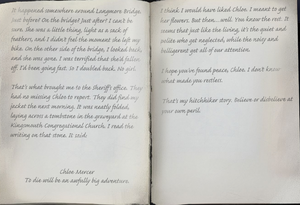 It happened somewhere around Longmore Bridge.
Just before? On the bridge? Just after? I can't be
sure. She was a little thing, light as a sack of
feathers, and I didn't feel the moment she left my
bike. On the other side of the bridge, I looked back,
and she was gone. I was terrified that she'd fallen
off. I'd been going fast. So I doubled back. No girl.
That's what brought me to the Sheriff's office. They
had no missing Chloe to report. They did find my
jacket the next morning. It was neatly folded,
lying across a tombstone in the graveyard at the
Kingsmouth Congregational Church. I read the
writing on that stone. It said:
Chloe Mercer
To die will be an awfully big adventure.
I think I would have liked Chloe. I meant to get
her flowers. But then... well. You know the rest. It
seems that just like the living, it's the quiet and
polite who get neglected, while the noisy and
belligerent get all of our attention.
I hope you've found peace, Chloe. I don't know
what made you restless.
That's my hitchhiker story. Believe or disbelieve at
your own peril.